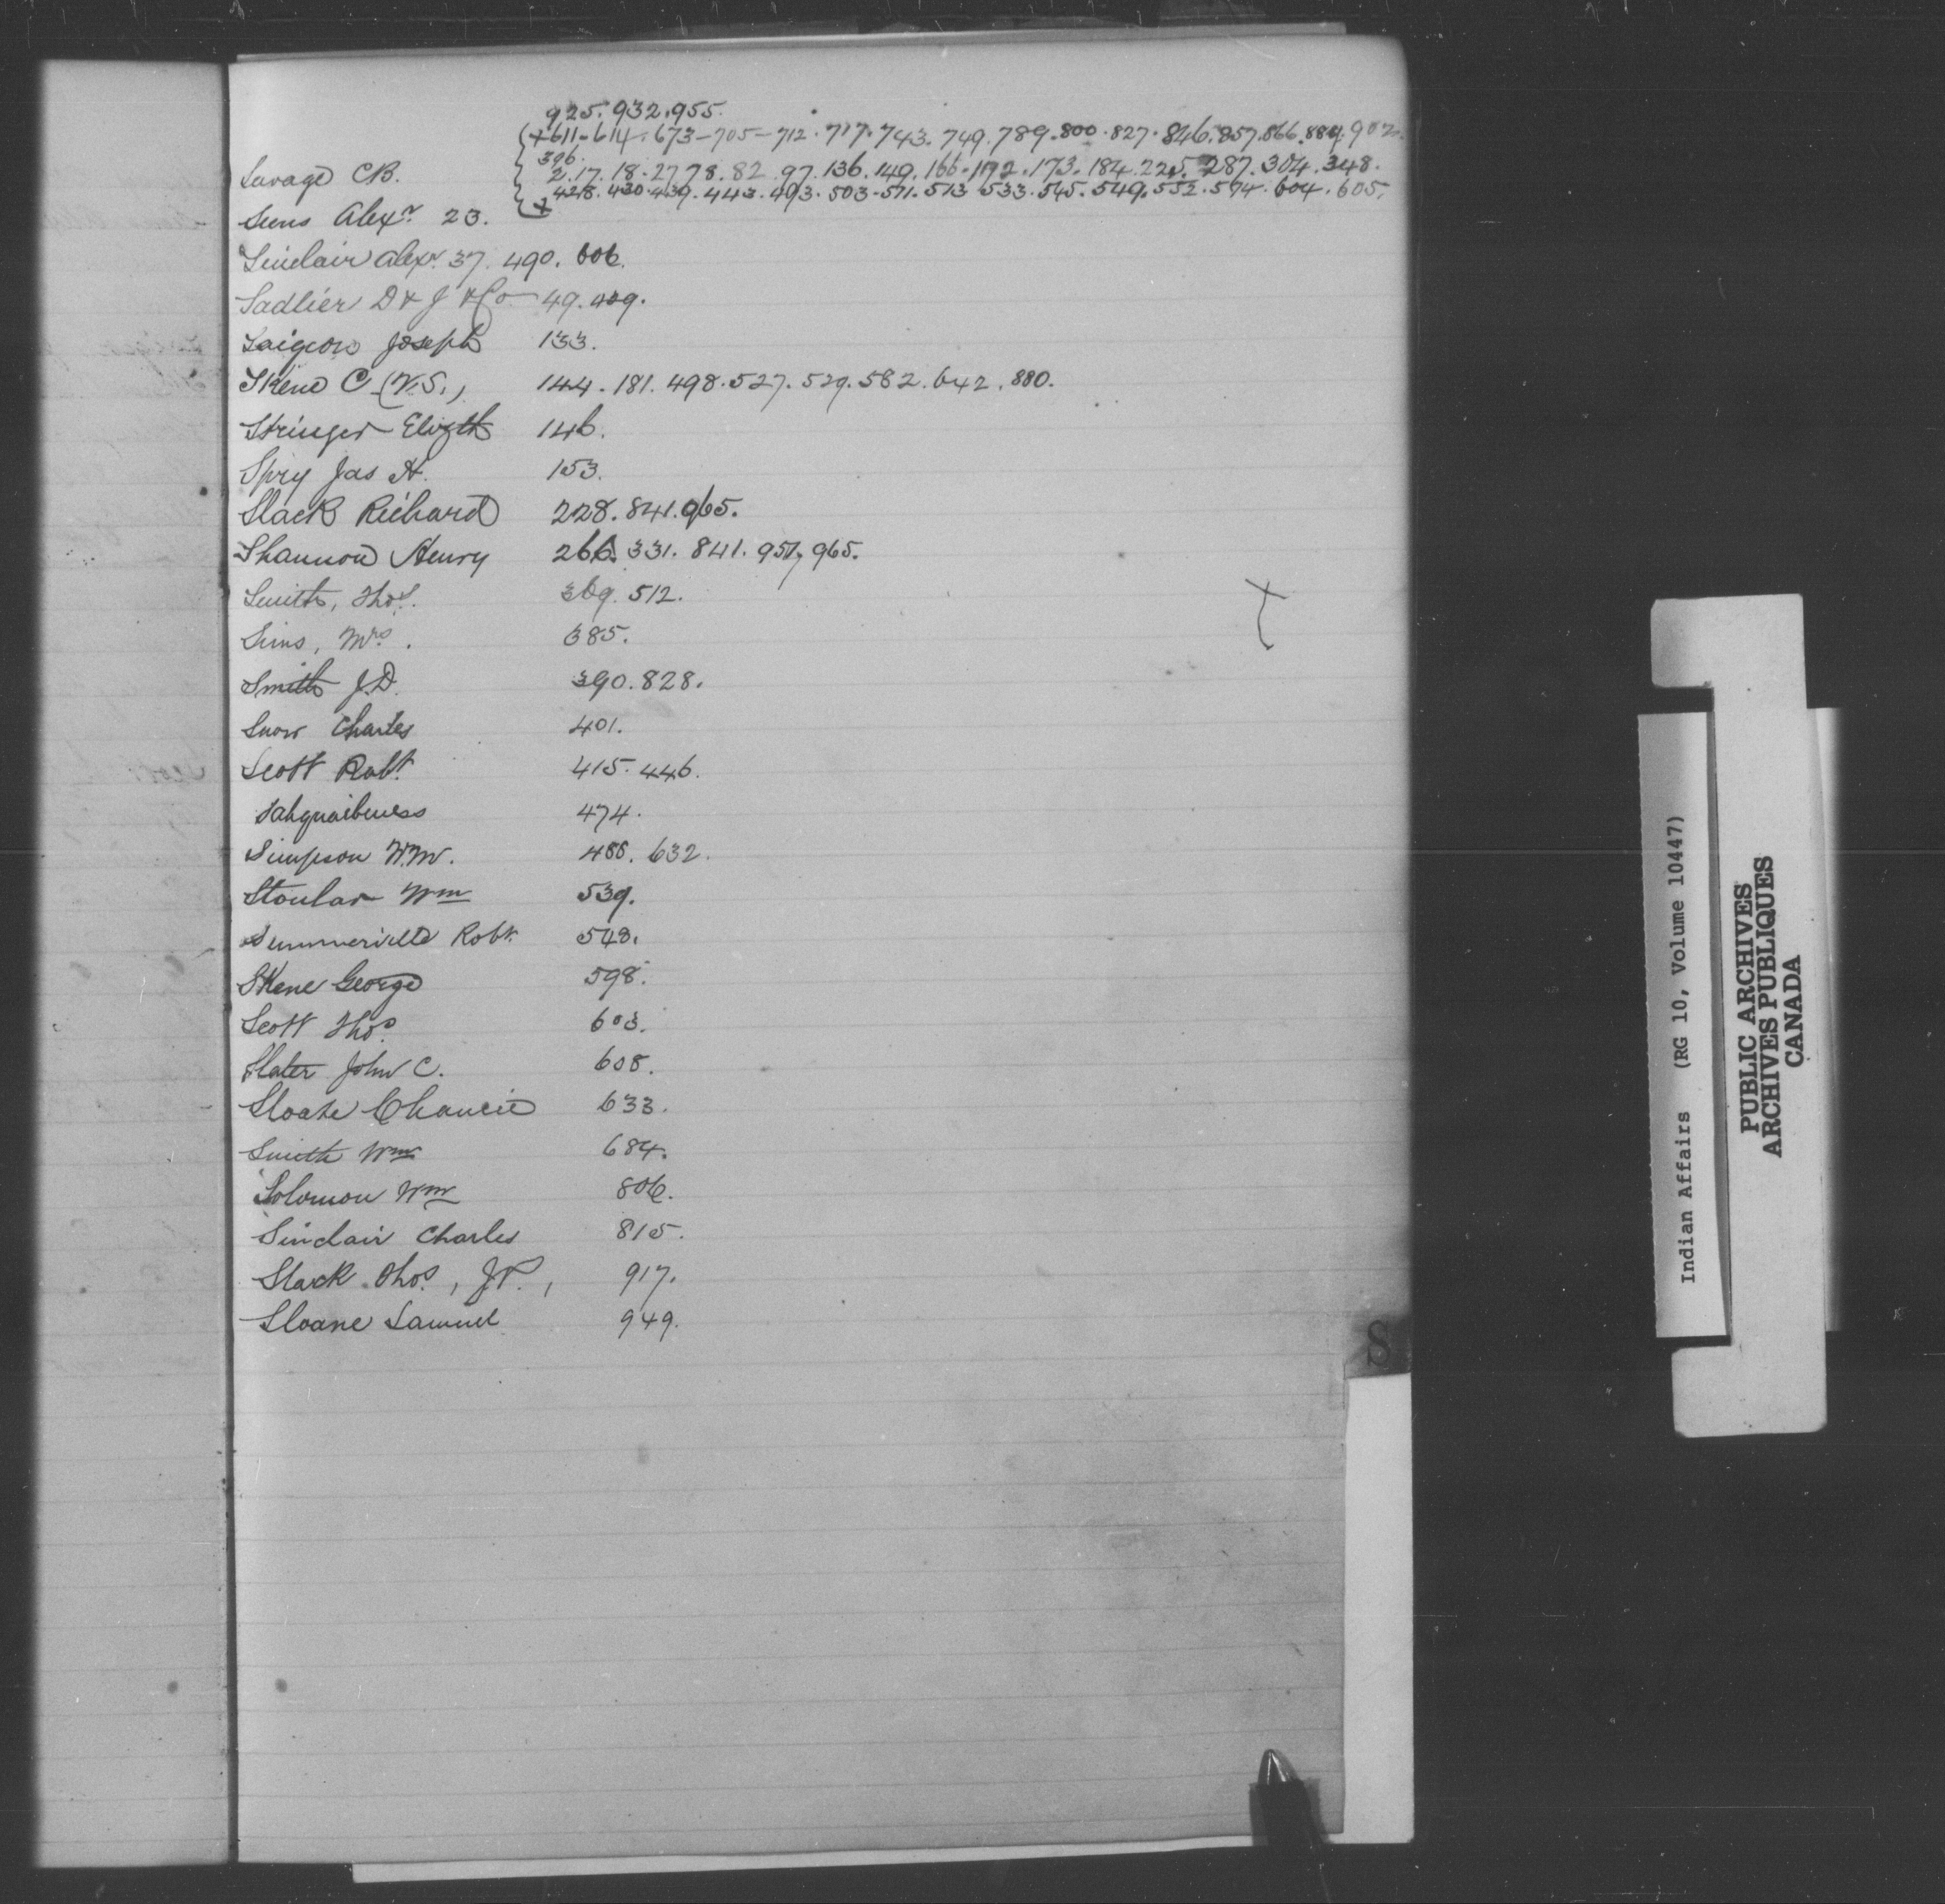 925. 932. 955.
+611-614-673-705-712. 717. 743. 749. 789. 800. 827. 846. 857. 866. 884. 902.
396.
Savage C.B. 2. 17. 18. 27 78. 82. 97. 136. 149. 166. 173. 184. 225. 287. 304. 348.
+ 428. 430. 439. 443. 493. 503. 511. 513 533. 545. 549. 552. 574. 604. 605.
Alexr 23.
Sinclair Alexr 37. 490. 606.
Sadlier D & J & Co 49. 409.
Joseph 133.
Skene C (V.S.) 144. 181. 498. 527. 529. 582. 642. 880.
Stringer Elizth 146.
Spry Jas H. 153.
Slack Richard 228. 841. 965.
Shannon Henry 266. 331. 841. 957, 965.
Smith, Thos. 369. 512.
Sims, Mrs. 385.
Smith J.D. 390. 828.
Snow Charles 401.
Scott Robt. 415. 446.
474.
Simpson W.M. 488. 632.
Wm 539.
Summerville Robt. 548.
Skene George 598.
Scott Thos. 603.
Slater John C. 608.
633.
Smith Wm 684.
Solomon Wm 806.
Sinclair Charles 815.
Slack Thos., J.P., 917.
Sloane Samuel 949.
S
Indian Affairs (RG 10, Volume 10447)
PUBLIC ARCHIVES
ARCHIVES PUBLIQUES
CANADA